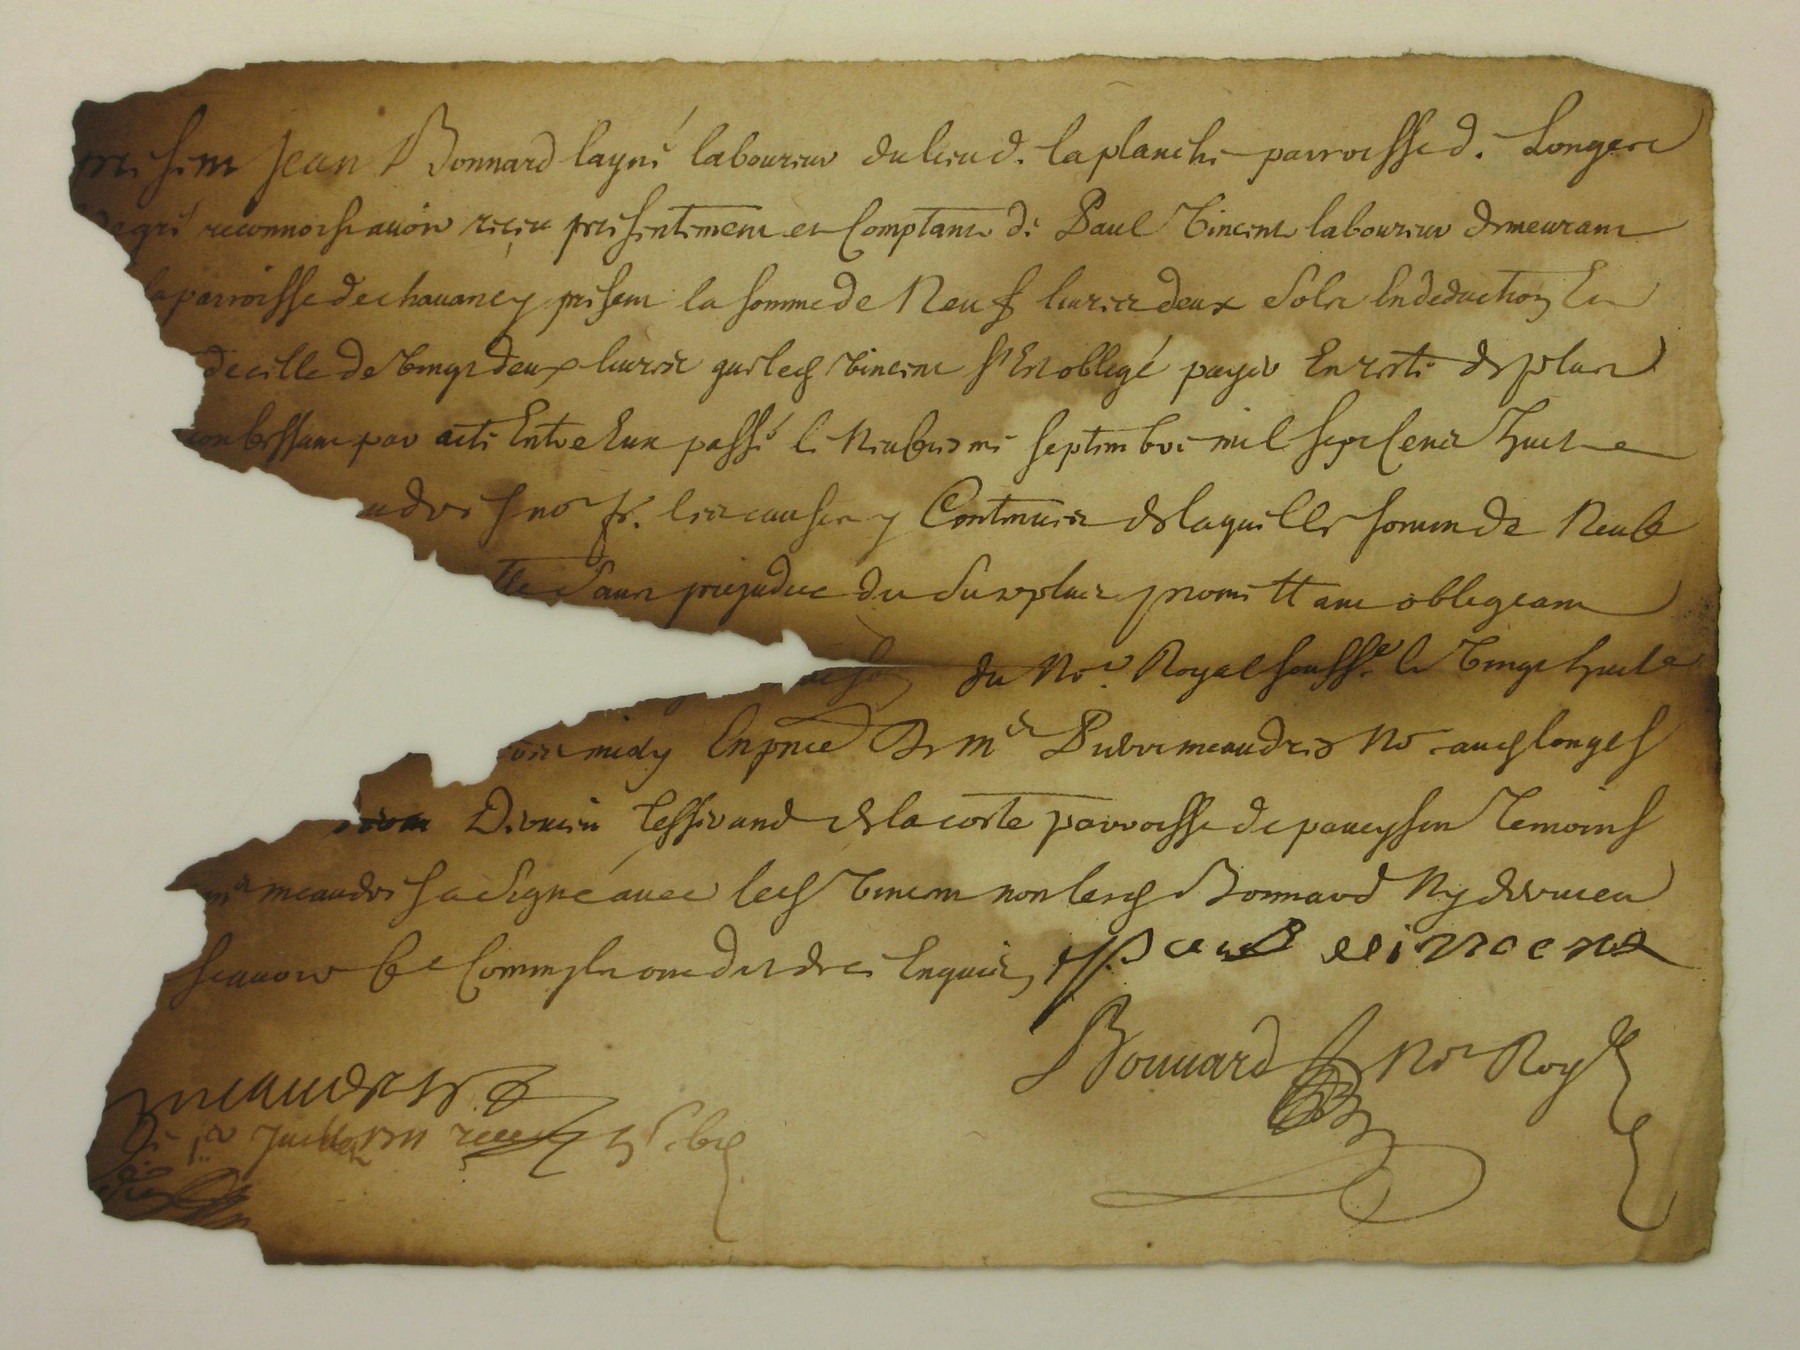 present Jean Bonnard layné laboureur du lieu d. la planche parroisse d. Longes
degré reconnois avoir receu presentement et Comptant de Paul Vincent laboureur demeurant
la parroisse de chavaney present la somme de Neuf livres deux sols En deduction Et
de celle de vingt deux livres que led Vincent s'est obligé payer En reste de plus
par acte Entre Eux passé le Neufvieme septembre mil sept cent huit
no.re les causes y Contenues de laquelle somme de Neuf
tte sans prejudice du surplus promettant obligeant
du No.re Royal souss.é le vingt huit
midy En pnce De m.e Pierre meaudres No.re aud longes
Devucieu tessirand de la coste parroisse de paveysin temoins
m.e meaudres a signé avec led Vincent non led Bonnard Ny devucieu
scavoir Ce Comm ils ont dit de ce Enquis, paul vimcent
Bonnard No.re Roy.l
meaudres
juillet 1711